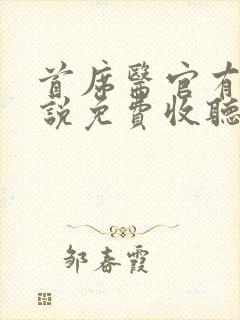 首席醫官有
說免費收聽
邹春霞